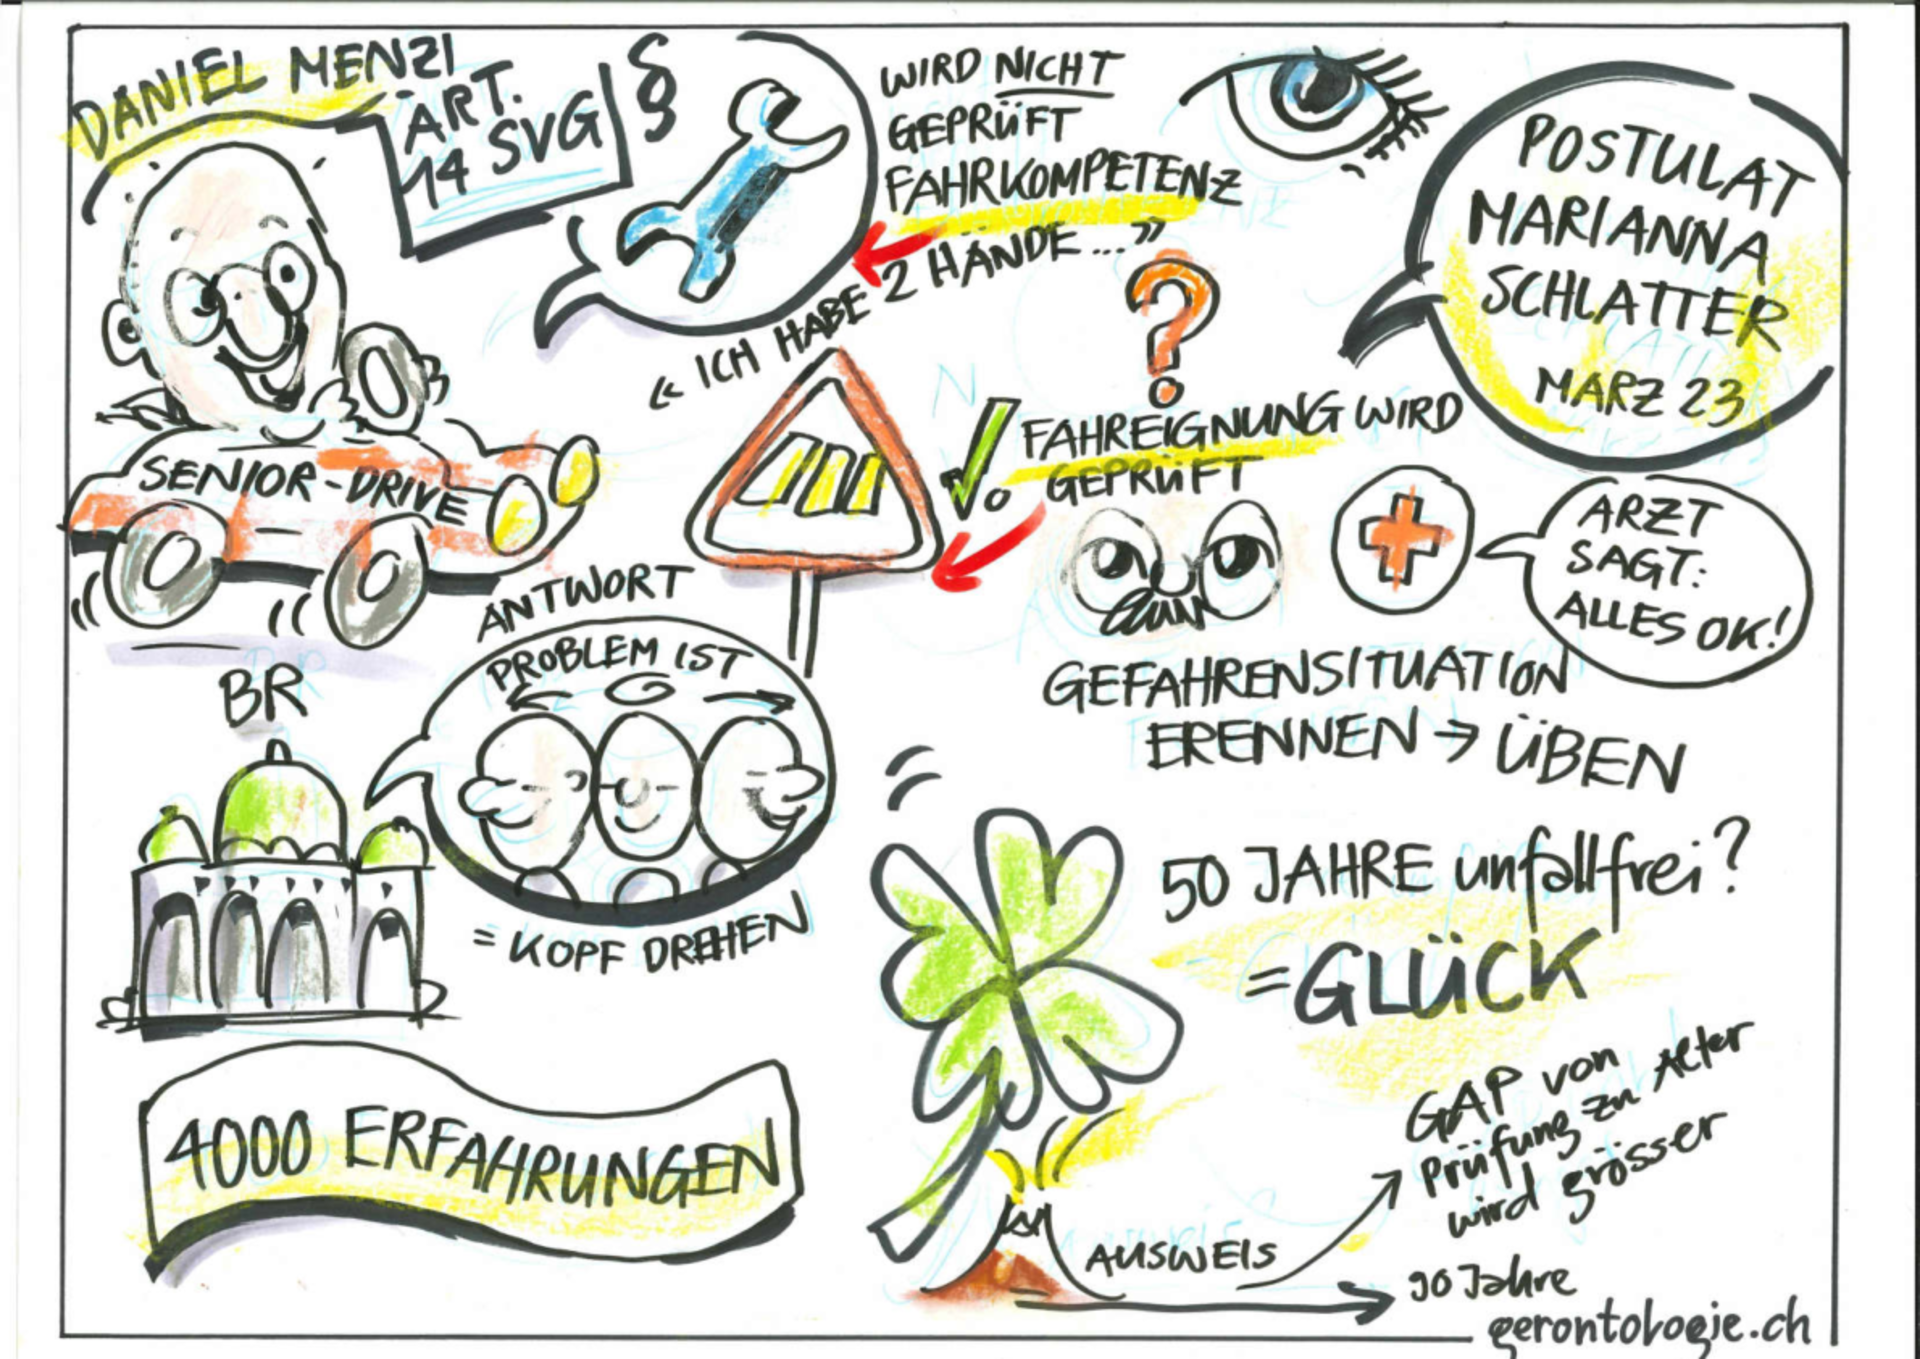 DANIEL MENZI
ART.
14 SVG
§
WIRD NICHT
GEPRÜFT
FAHRKOMPETENZ
« ICH HABE 2 HÄNDE... »
?
POSTULAT
MARIANNA
SCHLATTER
MÄRZ 23
SENIOR-DRIVE
FAHREIGNUNG WIRD
GEPRÜFT
ARZT
SAGT:
ALLES OK!
GEFAHRENSITUATION
ERENNEN → ÜBEN
ANTWORT
PROBLEM IST
= KOPF DREHEN
BR
50 JAHRE unfallfrei?
=GLÜCK
4000 ERFAHRUNGEN
GAP von
Prüfung zu Alter
wird grösser
AUSWEIS
90 Jahre
gerontologie.ch